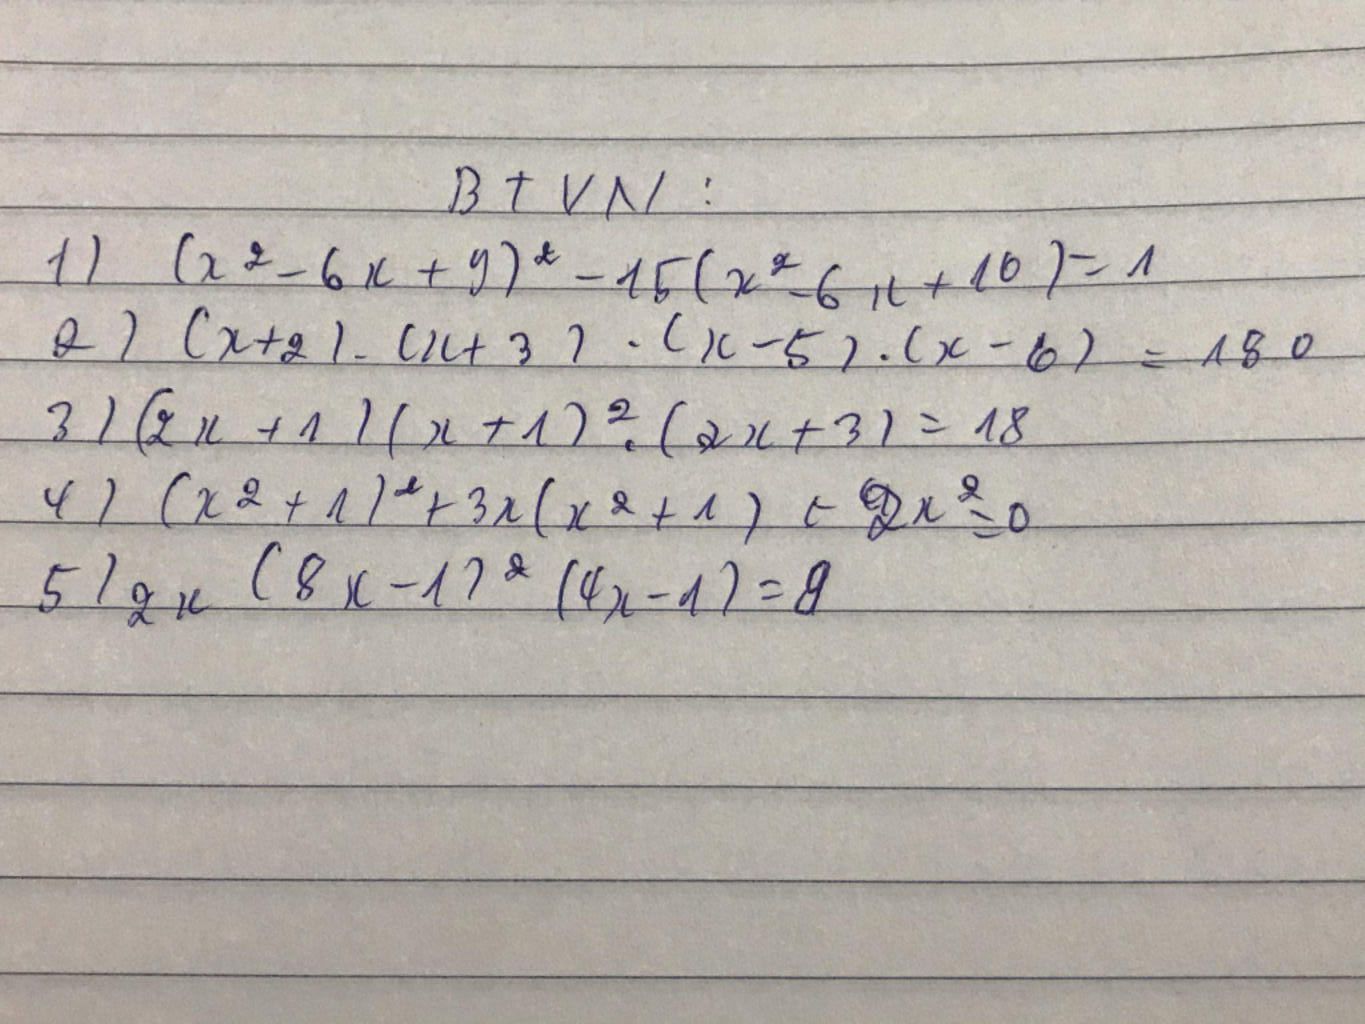 BTVN:
1) (x² - 6x + 9)² - 15(x² - 6x + 10) = 1
2) (x+2).(x+3).(x-5).(x-6) = 180
3) (2x+1)(x+1)².(2x+3) = 18
4) (x²+1)² + 3x(x²+1) + 2x² = 0
5) 2x (8x-1)² (4x-1) = 9